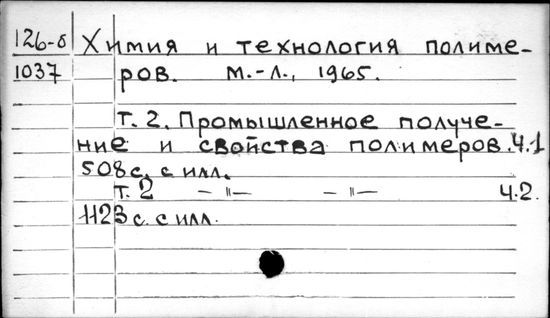 126-б Химия и технология полиме-
1037 ров. М.-Л., 1965.
Т. 2. Промышленное получе-
ние и свойства полимеров. Ч.1
508 с. с илл.
Т. 2 — " — — " — Ч.2.
1123 с. с илл.